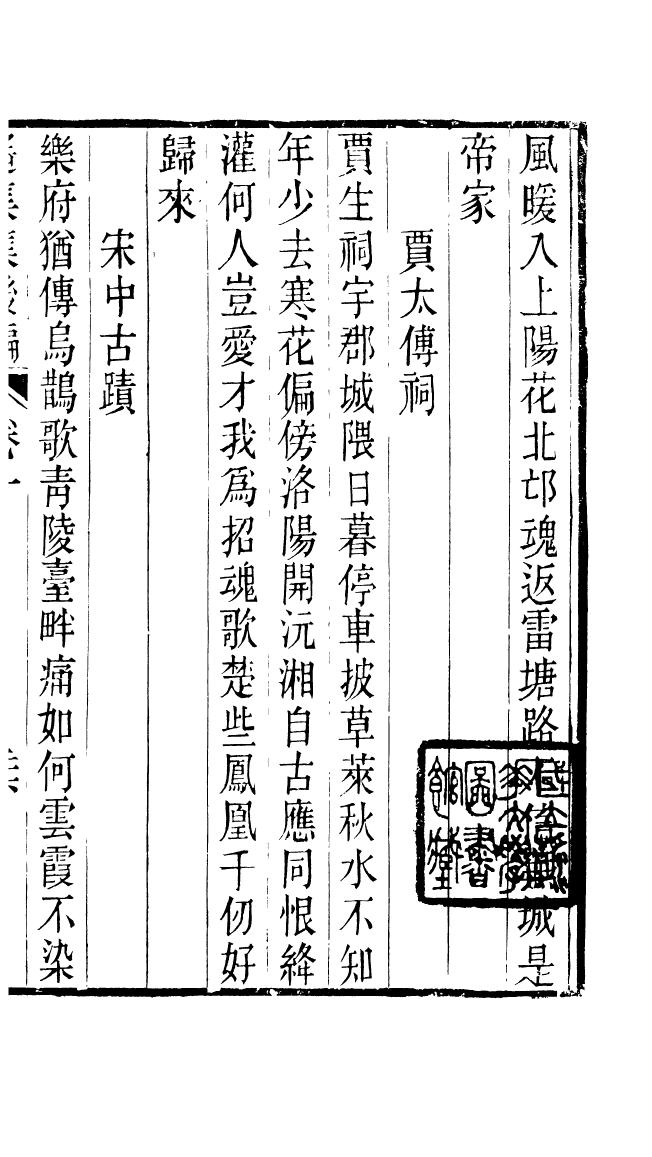 風暖入上陽花北邙魂返雷塘路不信蕪城是
帝家
賈太傅祠
賈生祠宇郡城隈日暮停車披草萊秋水不知
年少去寒花偏傍洛陽開沅湘自古應同恨絳
灌何人豈愛才我爲招魂歌楚些鳳凰千仞好
歸來
宋中古蹟
樂府猶傳烏鵲歌青陵臺畔痛如何雲霞不染
集後編
卷十